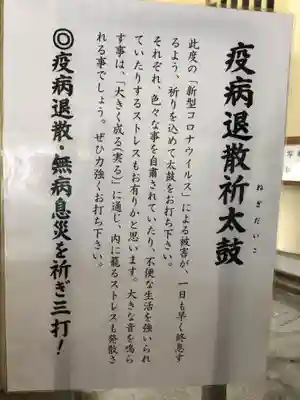 疫病退散祈太鼓
ねぎだいこ
此度の「新型コロナウイルス」による被害が、一日も早く終息す
るよう、祈りを込めて太鼓をお打ち下さい。
それぞれ、色々な事を自粛されていたり、不便な生活を強いられ
ていたりするストレスもお有りかと思います。大きな音を鳴ら
す事は、「大きく成る(実る)」に通じ、内に籠るストレスも発散さ
れる事でしょう。ぜひ力強くお打ち下さい。
◎疫病退散・無病息災を祈ぎ三打!